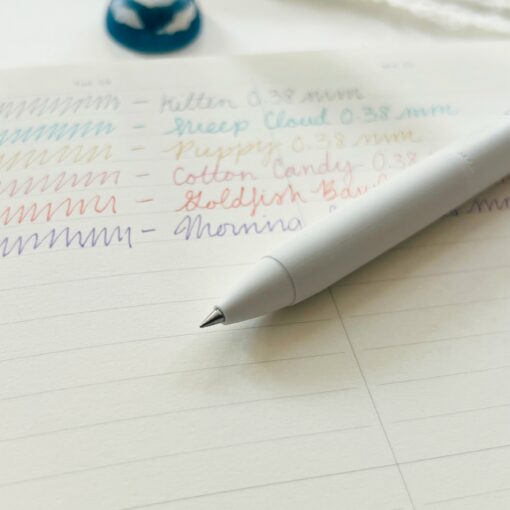 Kitten 0.38 mm
Sheep Cloud 0.38 mm
Puppy 0.38 mm
Cotton Candy 0.38
Goldfish Bay
Morning